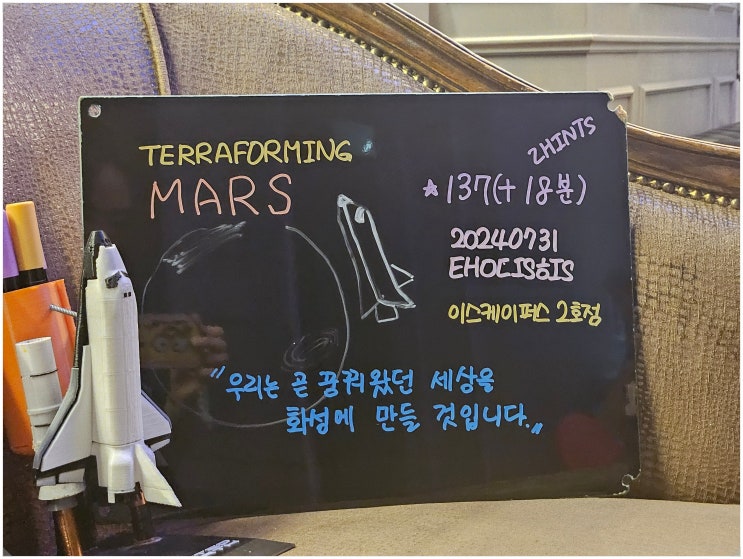 TERRAFORMING
MARS
2HINTS
☆137(+18분)
20240731
이스케이퍼스 2호점
"우리는 곧 꿈꿔왔던 세상을
화성에 만들 것입니다."